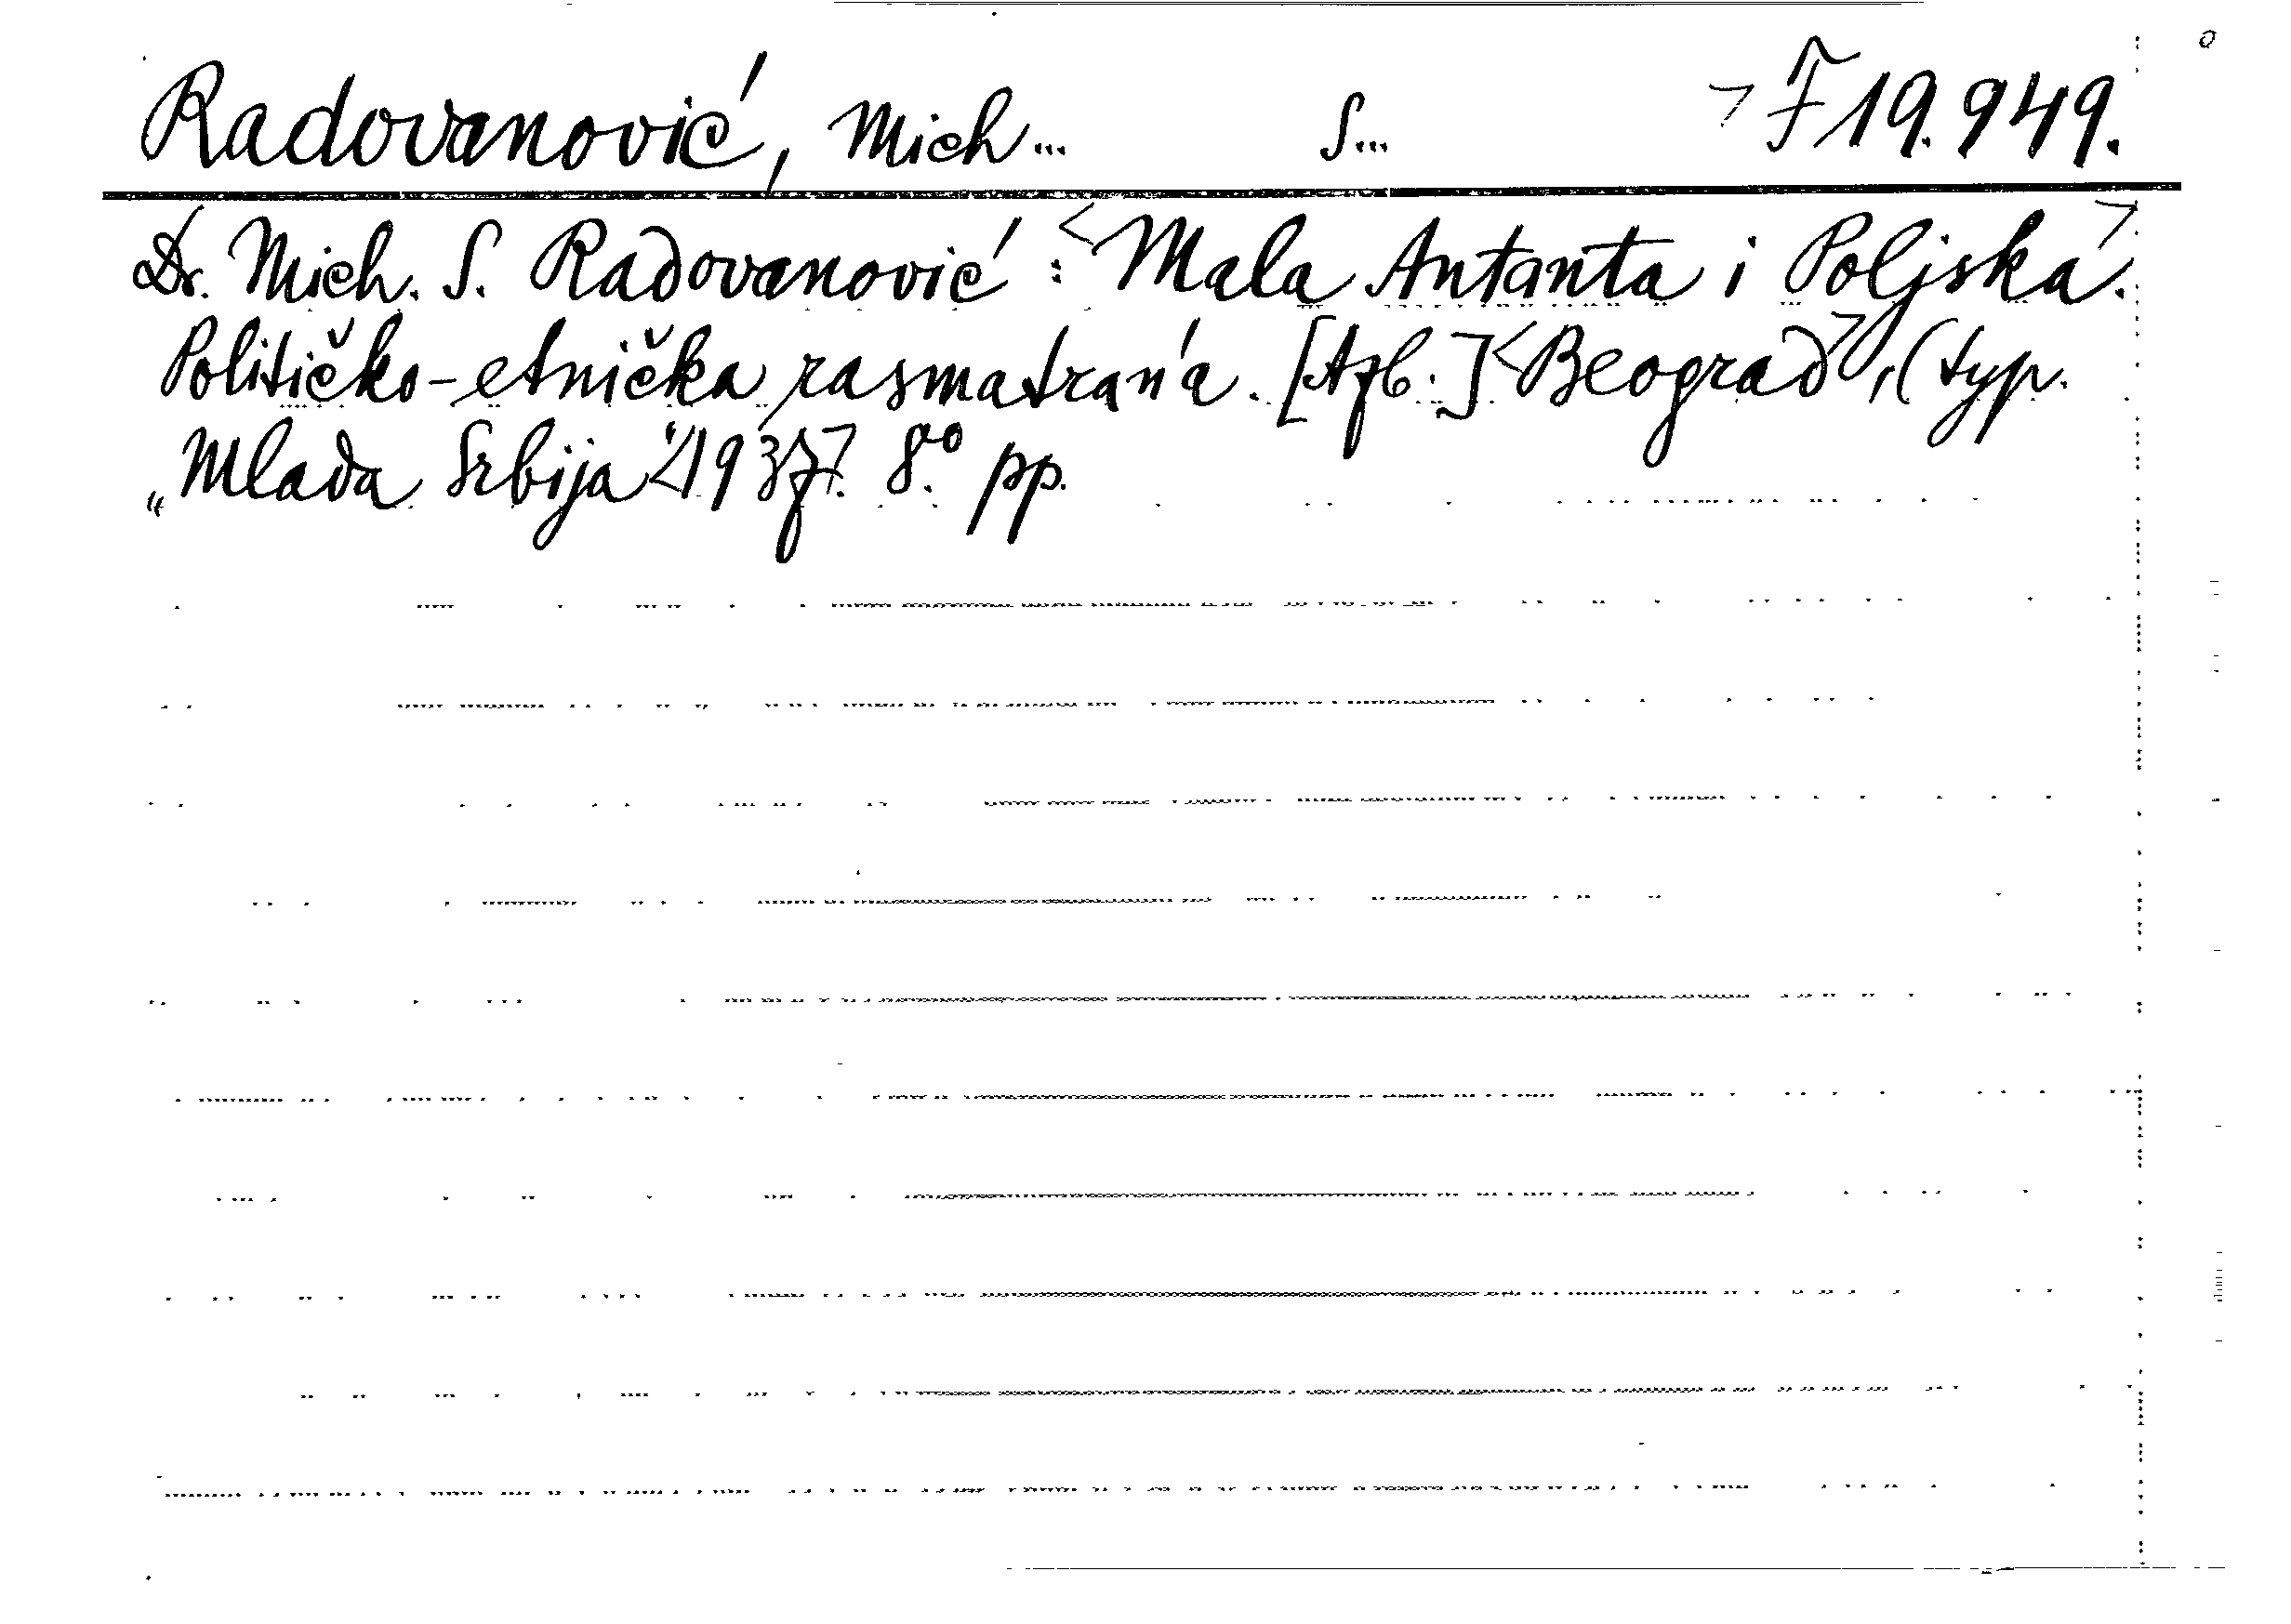 Radovanović, Mich... S... F 19.949.
Dr. Mich. S. Radovanović: <Mala Antanta i Poljska>.
Političko-etnička rasmatrańa. [Azb.] <Beograd>, (typ.
„Mlada Srbija“ <1937>. 8.° pp.